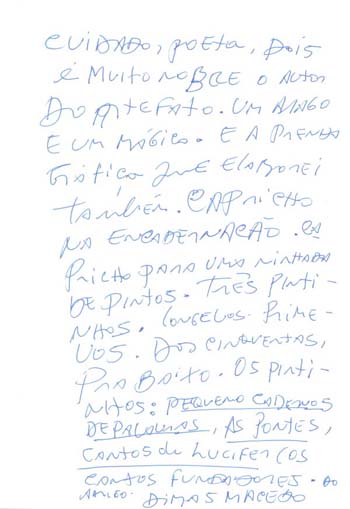 CUIDADO, POETA, POIS
É MUITO NOBRE O AUTOR
DO ARTEFATO. UM AMIGO
E UM MÁGICO. E A PRENDA
GRÁFICA QUE ELABOREI
TAMBÉM. CAPRICHO
NA ENCADERNAÇÃO. CA
PRICHO PARA UMA NINHADA
DE PINTOS. TRÊS PINTI-
NHOS. LONGEVOS. PRIME-
VOS. DOS CINQUENTAS,
PRA BAIXO. OS PINTI-
NHOS: PEQUENO CADERNOS
DE PALAVRAS, AS PONTES,
CANTOS DE LUCIFER (OS
CANTOS FUNDADORES. DO
AMIGO. DIMAS MACEDO